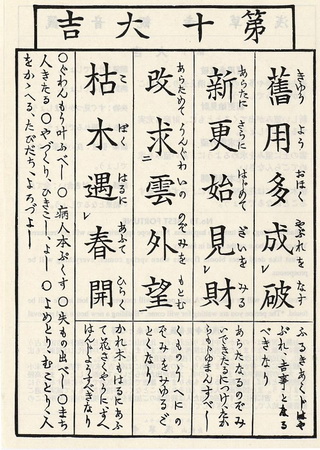 第十大吉
舊用多成破
きゆう よう おほく やぶれを なす
ふるきあくじはや
ぶれ、吉事となる
べきなり
新更始見財
あらたに さらに はじめて ざいを みる
あらたなるのぞみ
いできたるにつけ、たか
らもゆるまんすべし
改求雲外望
あらためて うんぐわいの のぞみを もとむ
くものうへにの
ぞみをみゆるご
とくなり
枯木遇春開
こ ぼく はるに あふて ひらく
かれ木もはるにあふ
て花さくやうにすへ
はんじようすべきなり
○ぐわんもう叶ふべし ○病人本ぷくす ○失もの出べし ○まち
人きたる ○やづくり、ひきこし、よし ○よめとり、むことり、人
をかゝへる、たびだち、よろづよし